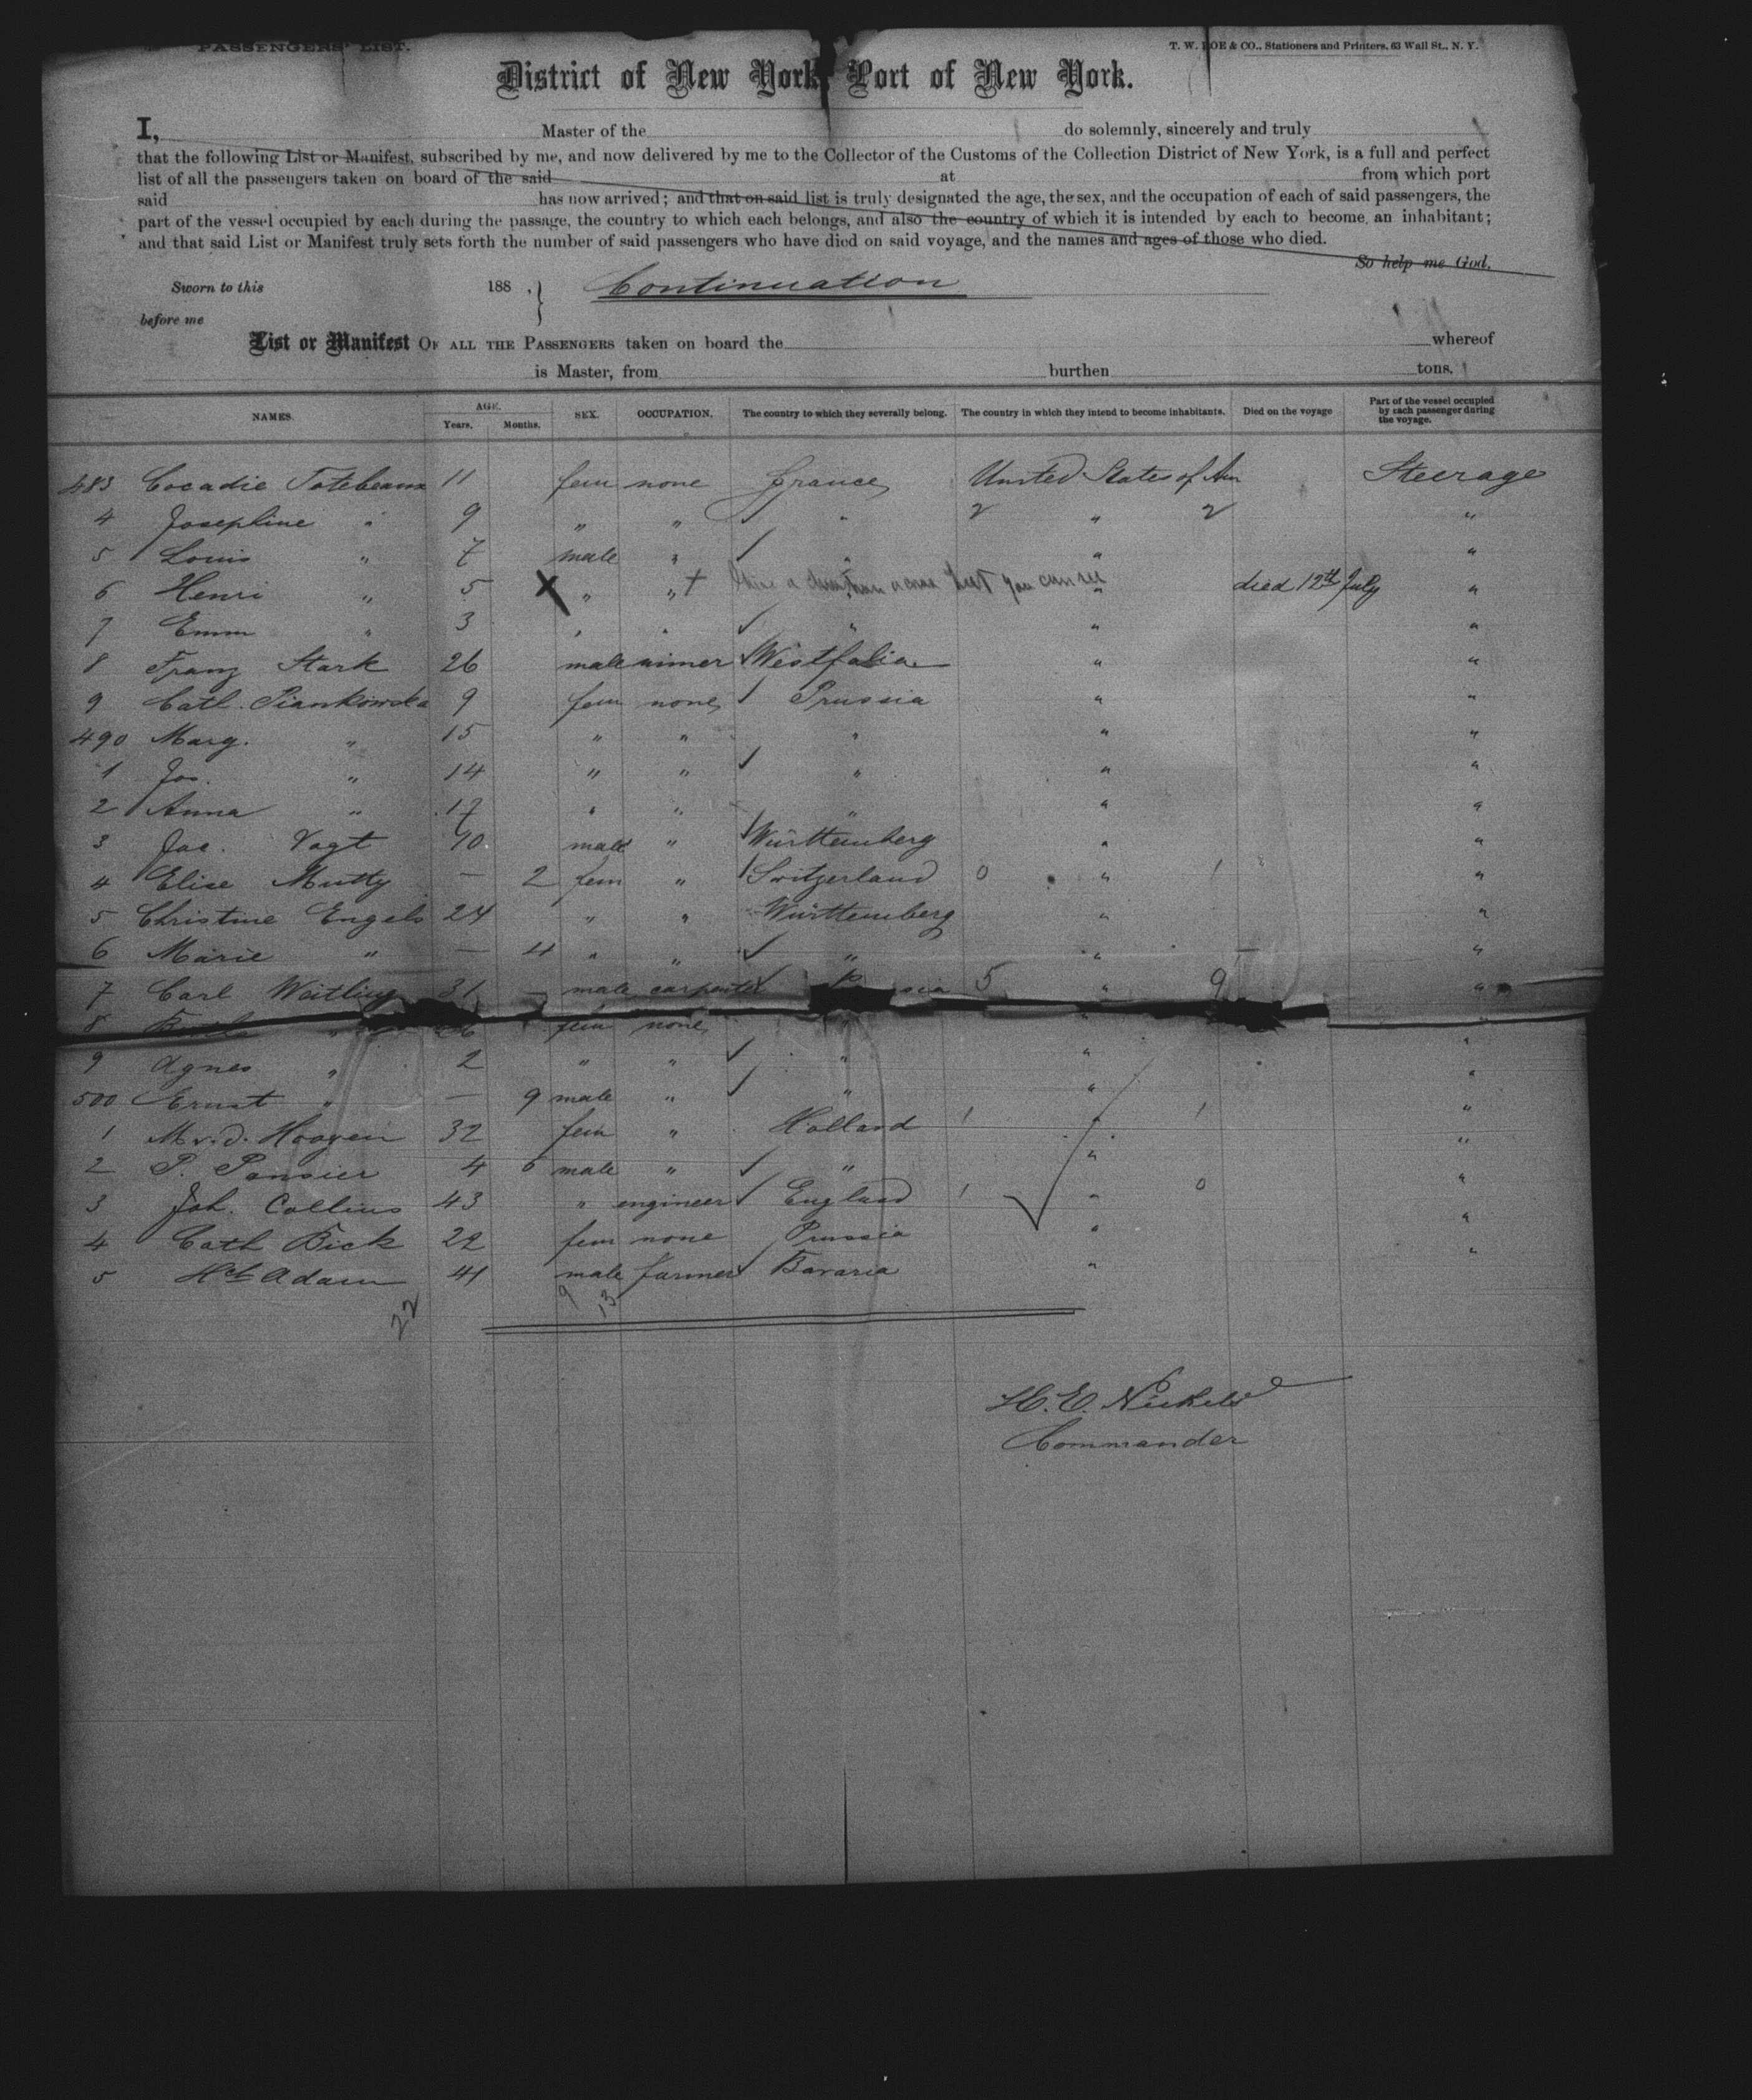 PASSENGERS' LIST.
T. W. ROE & CO., Stationers and Printers, 63 Wall St., N. Y.
District of New York, Port of New York.
I, Master of the do solemnly, sincerely and truly
that the following List or Manifest, subscribed by me, and now delivered by me to the Collector of the Customs of the Collection District of New York, is a full and perfect
list of all the passengers taken on board of the said at from which port
said has now arrived; and that on said list is truly designated the age, the sex, and the occupation of each of said passengers, the
part of the vessel occupied by each during the passage, the country to which each belongs, and also the country of which it is intended by each to become an inhabitant;
and that said List or Manifest truly sets forth the number of said passengers who have died on said voyage, and the names and ages of those who died.
So help me God.
Sworn to this 188 , } Continuation
before me
List or Manifest OF ALL THE PASSENGERS taken on board the whereof
is Master, from burthen tons.
NAMES. AGE. Years. Months. SEX. OCCUPATION. The country to which they severally belong. The country in which they intend to become inhabitants. Died on the voyage Part of the vessel occupied by each passenger during the voyage.
483 Cocadie 11 fem none France United States of Am Steerage
4 Josephine " 9 " " " 2 " 2 "
5 Louis " 7 male " " " "
6 Henri " 5 X " " + you can see " died 12th July "
7 Emm " 3 " " " " "
8 Franz Stark 26 male Westfalia " "
9 Cath. Piankowska 9 fem none Prussia " "
490 Marg. " 15 " " " " "
1 Jos. " 14 " " " " "
2 Anna " 17 " " " " "
3 Jac. Vogt male " Württemberg " "
4 Elise Mutty — 2 fem " Switzerland 0 " 1 "
5 Christine Engels 24 " " Württemberg " "
6 Marie " — 4 " " " " — "
7 Carl Weitling 31 — male carpenter 5 " 9 "
8 " fem none " " "
9 Agnes " 2 " " " " "
500 Ernst " — 9 male " " " "
1 M. v. d. Hoogen 32 fem " Holland 1 " 1 "
2 P. Pansier 4 6 male " " " "
3 Joh. Collins 43 " engineer England 1 " 0 "
4 Cath Bick 22 fem none Prussia " "
5 Hch Adam 41 male farmer Bavaria " "
22 9 13
H. E. Nickels
Commander